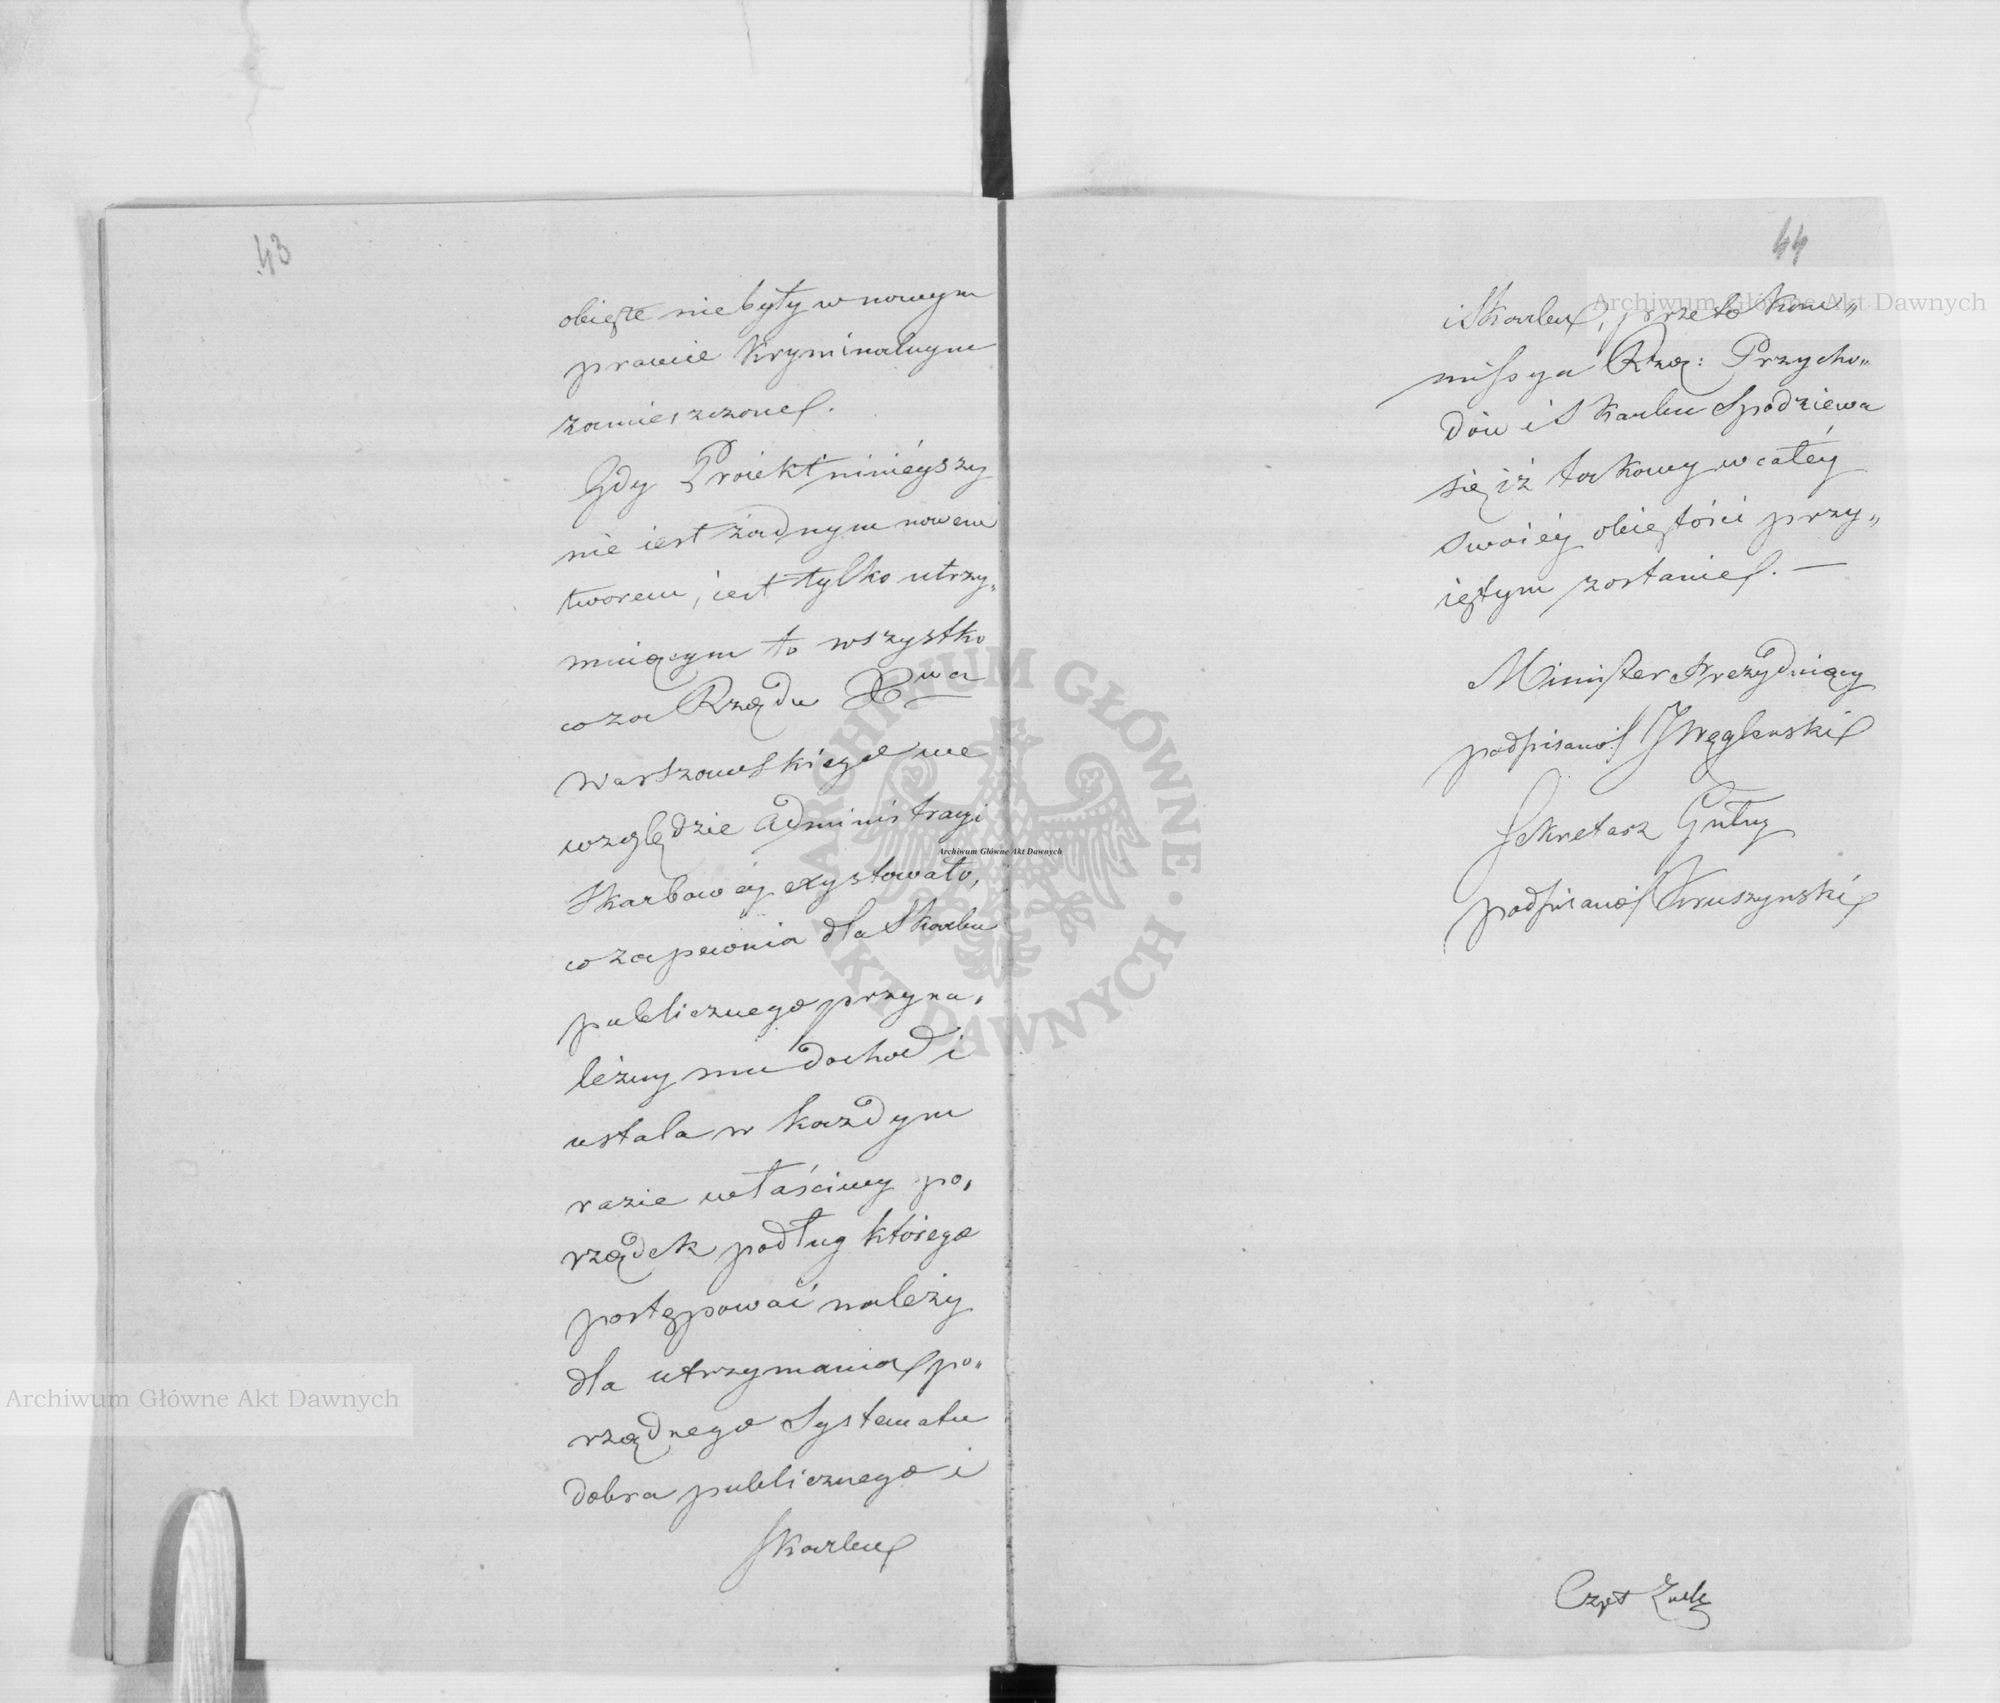 43
obięte nie były w nowym
prawie Kryminalnym
zamieszczone.
Gdy Proiekt ninieyszy
nie iest żadnym nowem
tworem, iest tylko utrzy„
muiącym to wszystko
co za Rządu Xwa
Warszawskiego we
względzie administracyi
Skarbowéy exystowało,
co zapewnia dla Skarbu
publicznego przyna„
leżny mu dochod i
ustala w każdym
razie właściwy po„
rządek podług którego
postępować należy
dla utrzymania po„
rządnego Systematu
dobra publicznego i
Skarbu
44
i Skarbu, przeto Kom„
missya Rzą: Przycho„
dów i Skarbu Spodziewa
się iż takowy w całéy
swoiéy obiętości przy„
iętym zostanie. —
Minister Prezyduiący
podpisano Węgleński
Sekretarz Gñlny
podpisano Kruszynski
Archiwum Główne Akt Dawnych
Archiwum Główne Akt Dawnych
Archiwum Główne Akt Dawnych
ARCHIWUM GŁÓWNE AKT DAWNYCH